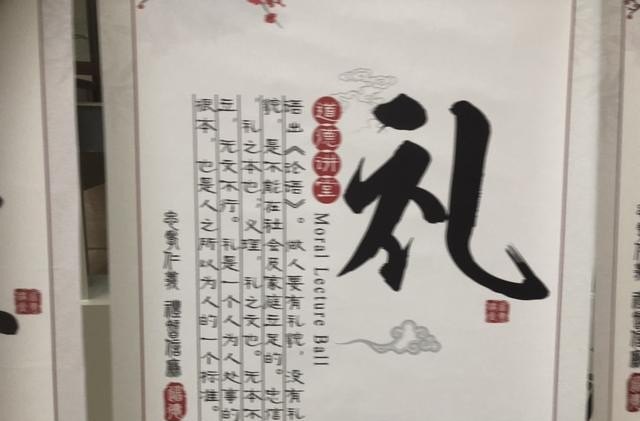 礼
道德讲堂
Moral Lecture Ball
语出《论语》。做人要有礼貌，没有礼
貌，是不能在社会及家庭立足的。忠信
礼之本也，义理，礼之文也。无本不
立，无文不行。礼是一个人为人处事的
根本。也是人之所以为人的一个标准。
忠孝仁义 禮智信廉